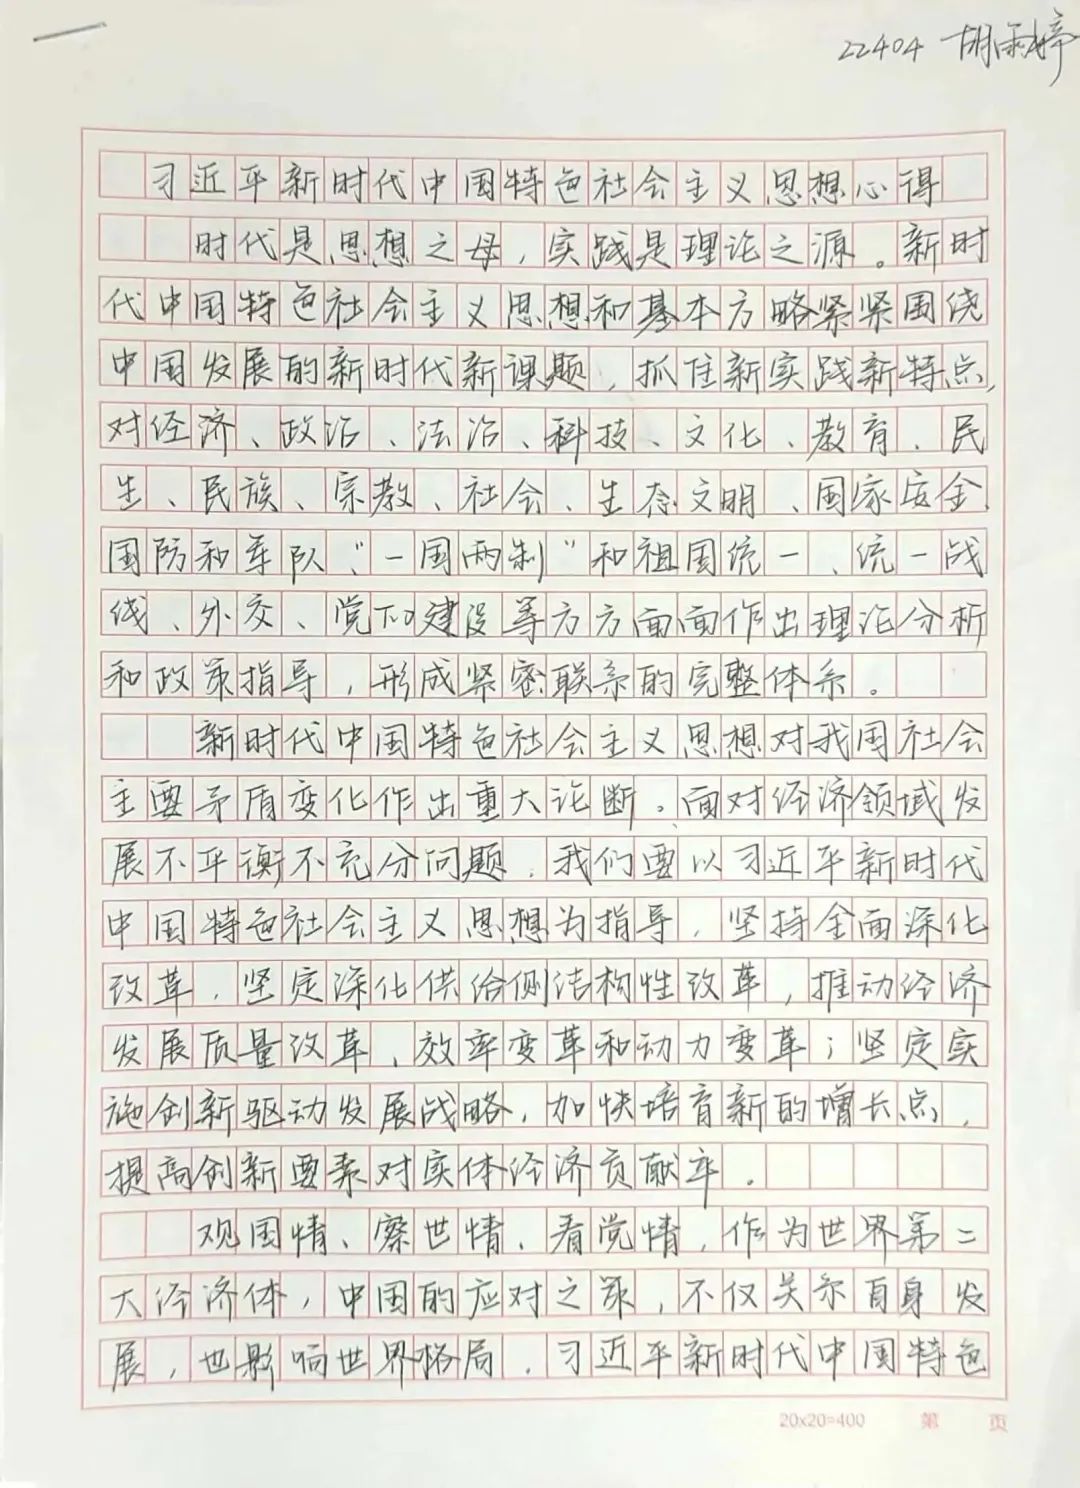 22404 胡雨婷
习近平新时代中国特色社会主义思想心得
时代是思想之母，实践是理论之源。新时
代中国特色社会主义思想和基本方略紧紧围绕
中国发展的新时代新课题，抓住新实践新特点，
对经济、政治、法治、科技、文化、教育、民
生、民族、宗教、社会、生态文明、国家安全、
国防和军队、“一国两制”和祖国统一、统一战
线、外交、党的建设等方方面面作出理论分析
和政策指导，形成紧密联系的完整体系。
新时代中国特色社会主义思想对我国社会
主要矛盾变化作出重大论断。面对经济领域发
展不平衡不充分问题，我们要以习近平新时代
中国特色社会主义思想为指导，坚持全面深化
改革，坚定深化供给侧结构性改革，推动经济
发展质量改革、效率变革和动力变革；坚定实
施创新驱动发展战略，加快培育新的增长点，
提高创新要素对实体经济贡献率。
观国情、察世情、看党情，作为世界第二
大经济体，中国的应对之策，不仅关乎自身发
展，也影响世界格局，习近平新时代中国特色
20x20=400 第 页